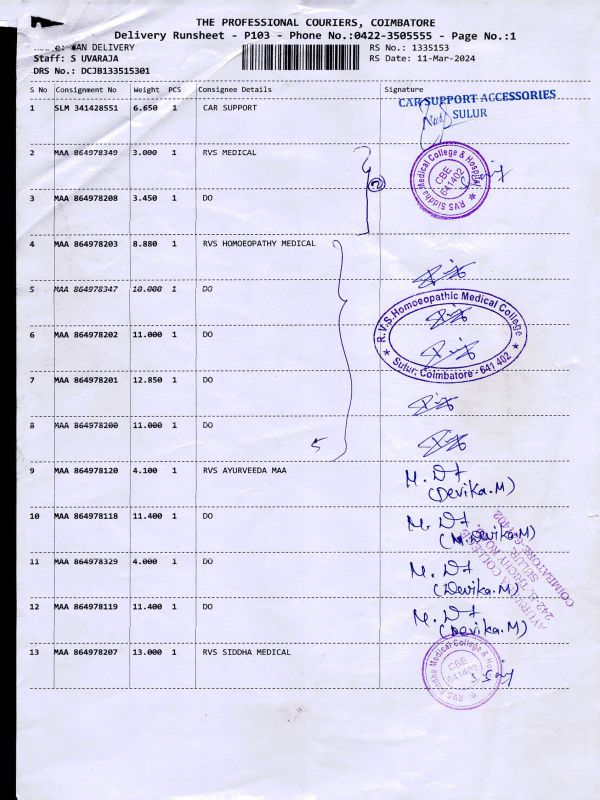 THE PROFESSIONAL COURIERS, COIMBATORE
Delivery Runsheet - P103 - Phone No.:0422-3505555 - Page No.:1
VAN DELIVERY RS No.: 1335153
Staff: S UVARAJA RS Date: 11-Mar-2024
DRS No.: DCJB133515301
S No Consignment No Weight PCS Consignee Details Signature
1 SLM 341428551 6.650 1 CAR SUPPORT
CAR SUPPORT ACCESSORIES
SULUR
2 MAA 864978349 3.000 1 RVS MEDICAL
RVS Siddha Medical College & Hospital
CBE
641402
2
3 MAA 864978208 3.450 1 DO
4 MAA 864978203 8.880 1 RVS HOMOEOPATHY MEDICAL
5 MAA 864978347 10.000 1 DO
R.V.S. Homoeopathic Medical College
Sulur, Coimbatore - 641 402
6 MAA 864978202 11.000 1 DO
7 MAA 864978201 12.850 1 DO
8 MAA 864978200 11.000 1 DO
5
9 MAA 864978120 4.100 1 RVS AYURVEEDA MAA
(Devika.M)
10 MAA 864978118 11.400 1 DO
(M.Devika.M)
11 MAA 864978329 4.000 1 DO
(Devika.M)
12 MAA 864978119 11.400 1 DO
(Devika.M)
SULUR,
COIMBATORE-641402
13 MAA 864978207 13.000 1 RVS SIDDHA MEDICAL
RVS Siddha Medical College & Hospital
CBE
641402